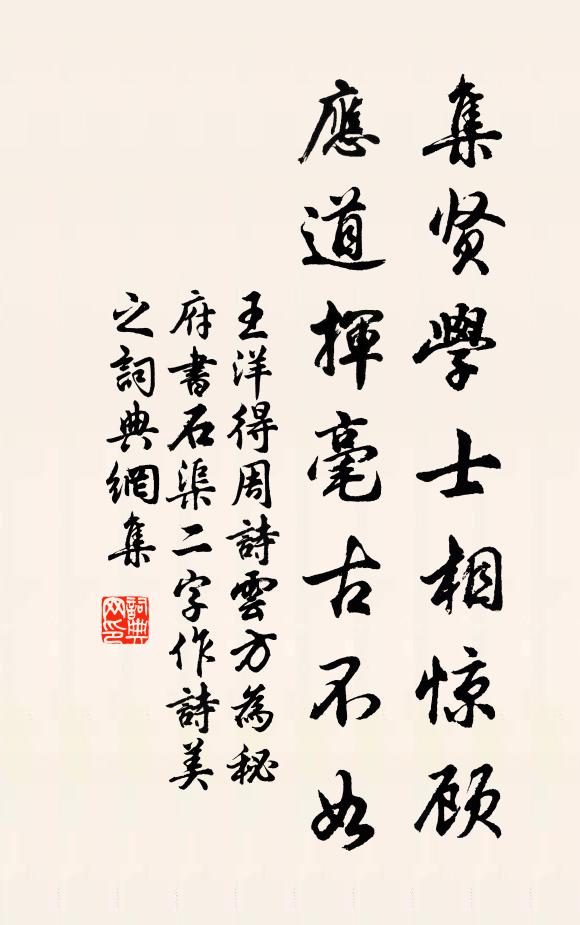 集贤學士相惊顾
應道揮毫古不如
王洋得周詩雲方為秘
府書石渠二字作詩美
之詞典網集
詞典
网印